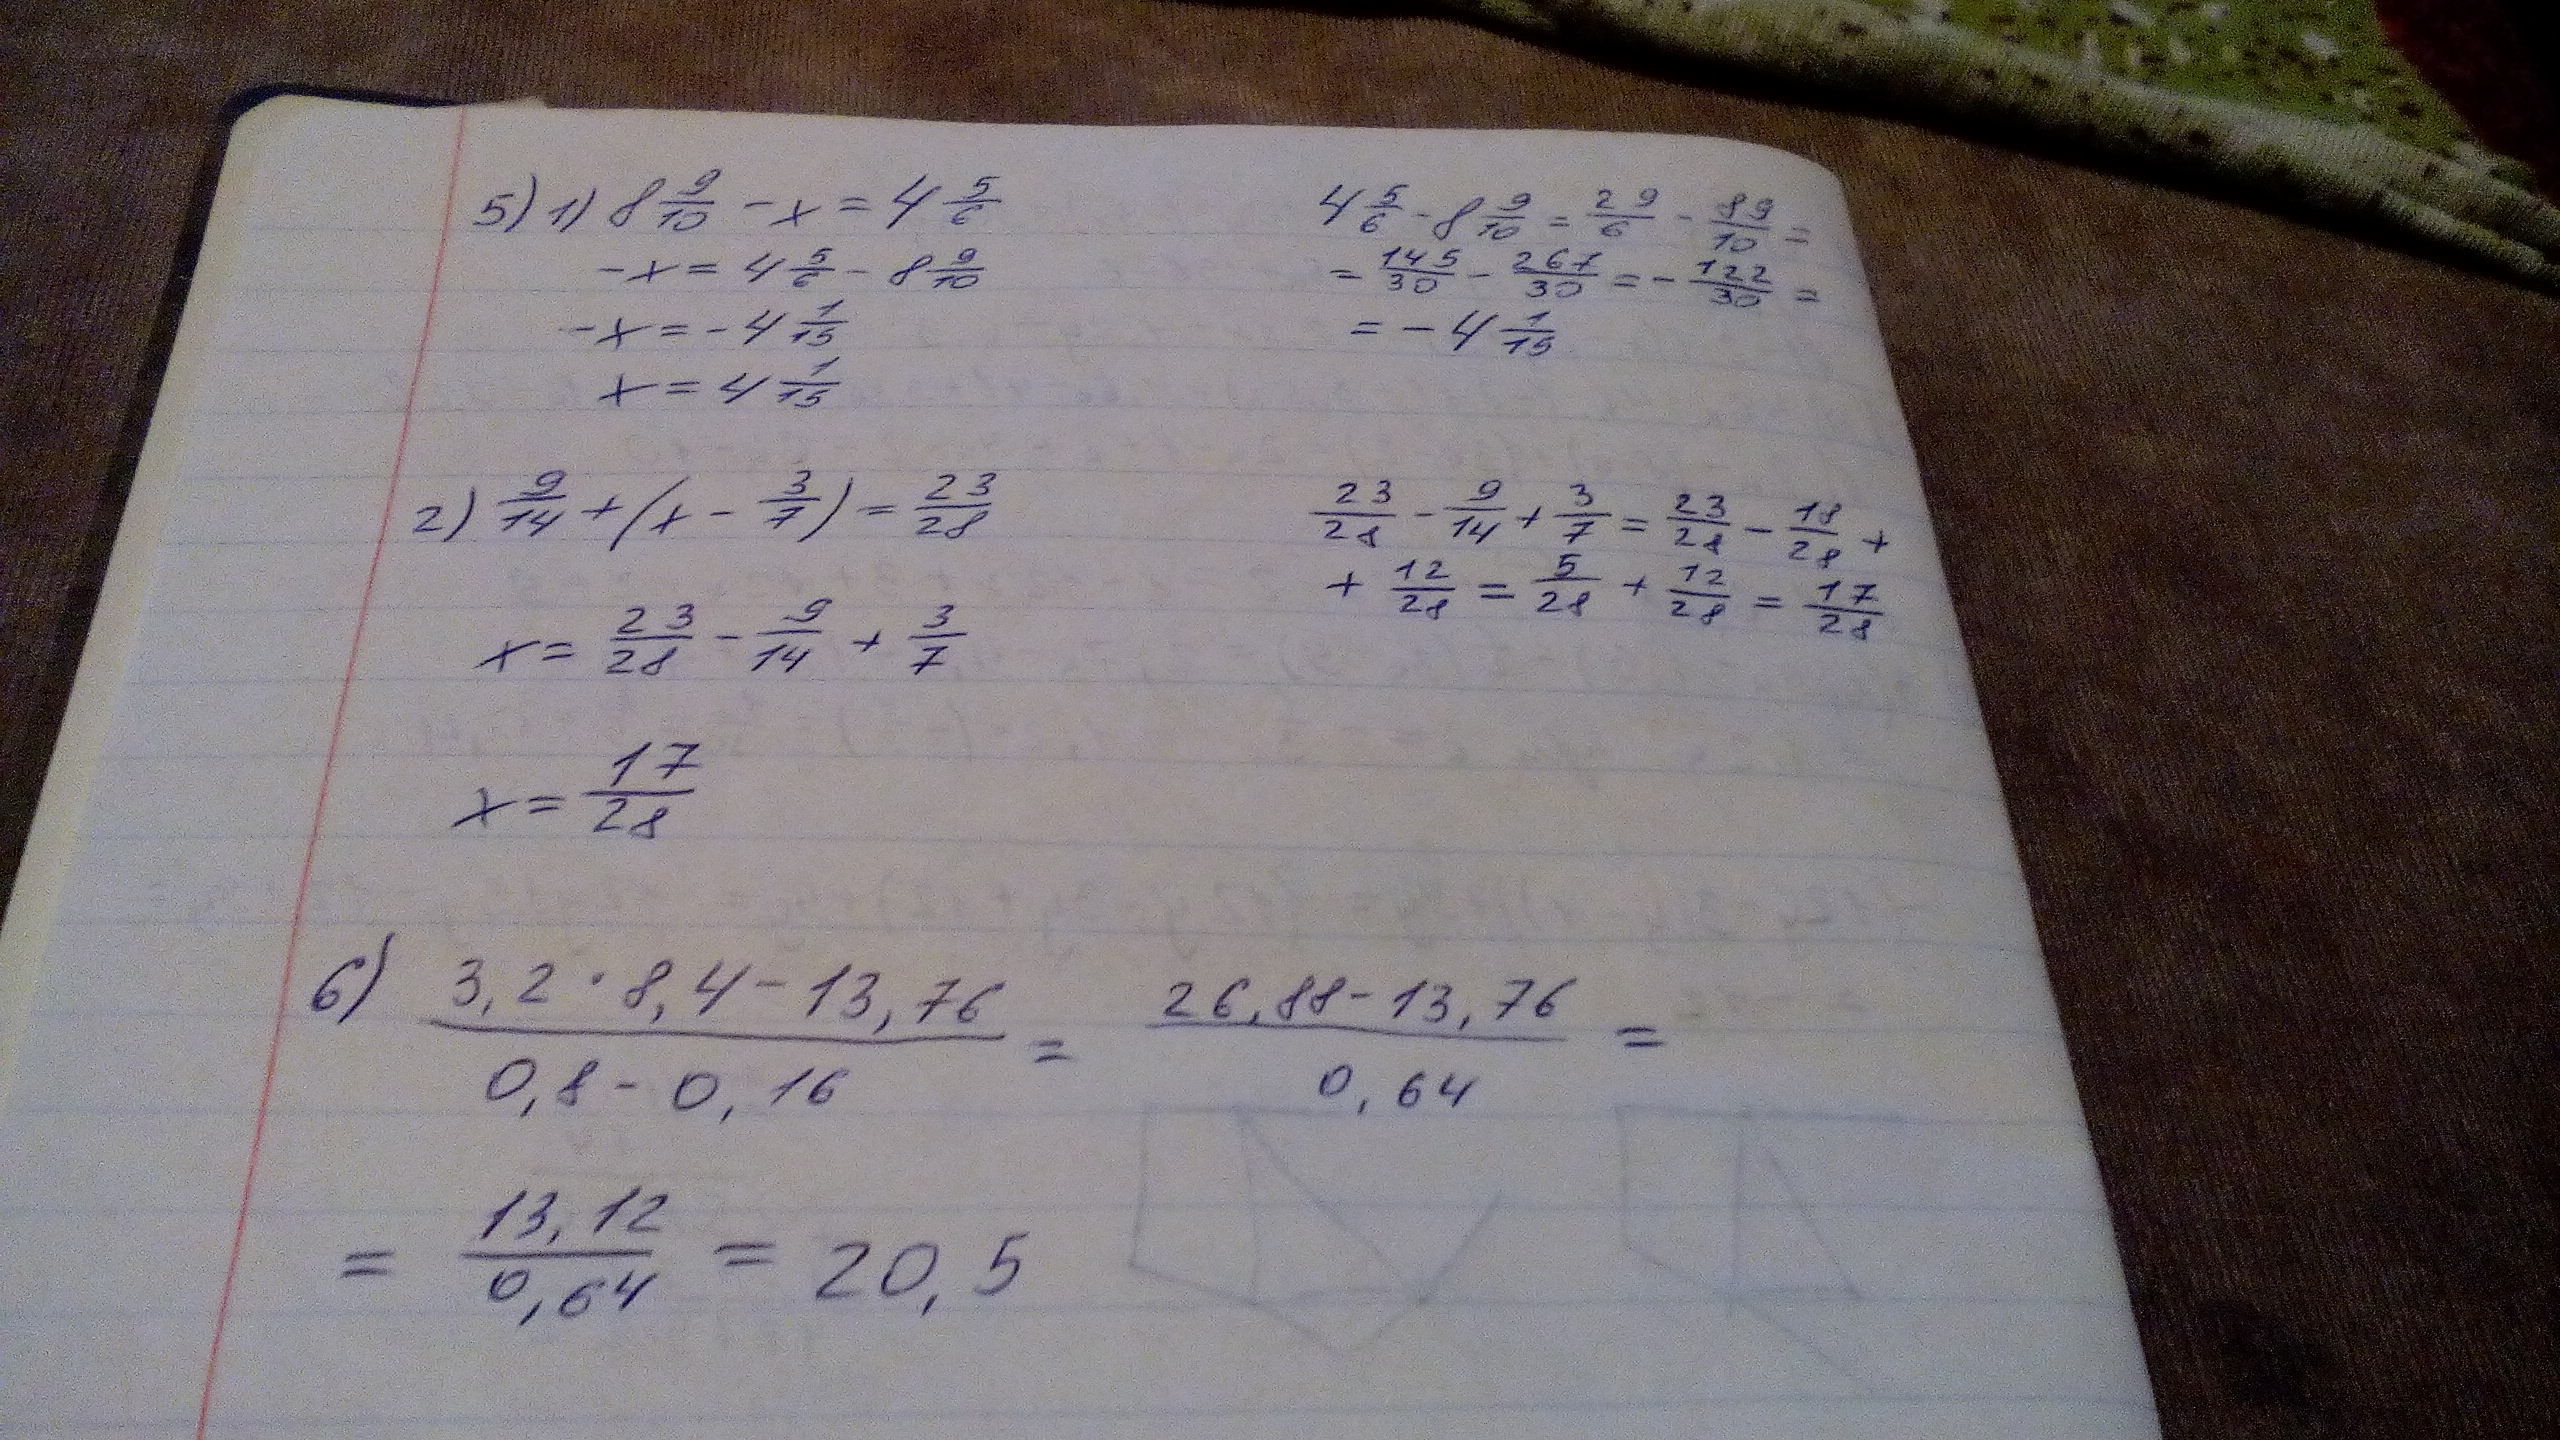 5) 1) 8 9/10 - x = 4 5/6
-x = 4 5/6 - 8 9/10
-x = -4 1/15
x = 4 1/15
4 5/6 - 8 9/10 = 29/6 - 89/10 =
= 145/30 - 267/30 = - 122/30 =
= -4 1/15
2) 9/14 + (x - 3/7) = 23/28
x = 23/28 - 9/14 + 3/7
x = 17/28
23/28 - 9/14 + 3/7 = 23/28 - 18/28 +
+ 12/28 = 5/28 + 12/28 = 17/28
6) (3,2 · 8,4 - 13,76)/(0,8 - 0,16) = (26,88 - 13,76)/0,64 =
= 13,12/0,64 = 20,5